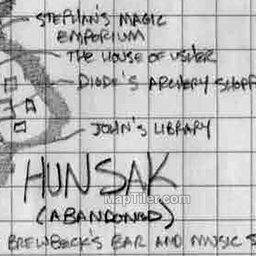 STEPHAN'S MAGIC
EMPORIUM
THE HOUSE OF USHER
DIODE'S ARCHERY SHOPP
JOHN'S LIBRARY
HUNSAK
MapTiler.com
(ABANDONED)
BREWBECK'S BAR AND MUSIC S